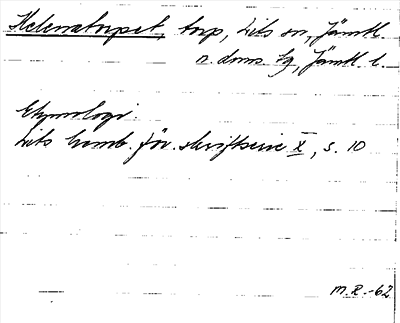 Helenatorpet, torp, Lits sn, Jämtl.
n. doms. tg, Jämtl. l.
Etymologi.
Lits hemb. för. skriftserie X, s. 10
M.R.-62